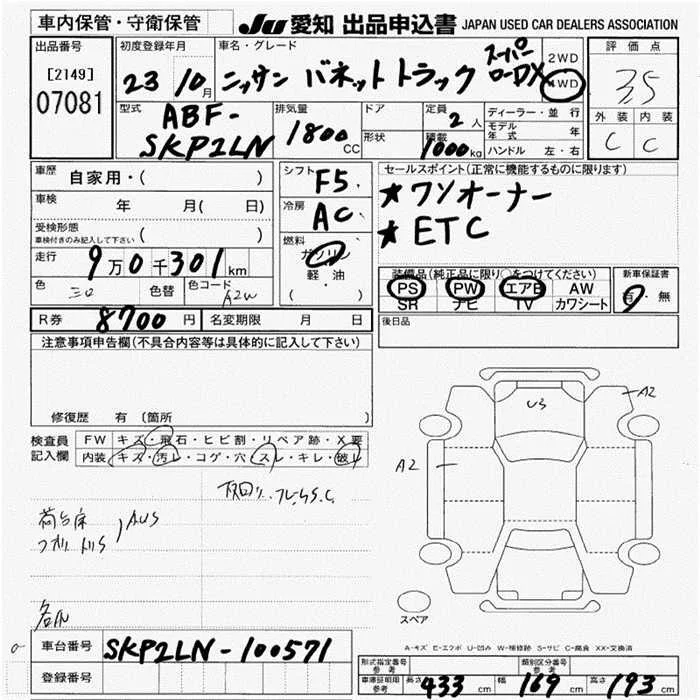 車内保管・守衛保管
JU 愛知 出品申込書 JAPAN USED CAR DEALERS ASSOCIATION
出品番号
[2149]
07081
初度登録年月
23年 10月
車名・グレード
ニッサン バネットトラック スーパーローDX
2WD
4WD
評価点
3.5
外装 内装
C C
型式
ABF-
SKP2LN
排気量
1800 CC
ドア
形状
定員
2人
積載
1000kg
ディーラー・並行
モデル年式 年
ハンドル 左・右
車歴 自家用・( )
車検 年 月( 日)
受検形態 ( )
車検付きのみ記入して下さい
走行 9万0千301km
色 シロ 色替 色コード A2W
シフト F5
冷房 AC
燃料
ガソリン
軽油
( )
セールスポイント(正常に機能するものに限ります)
★ワンオーナー
★ETC
装備品(純正品に限り○をつけてください)
PS PW エアB AW
SR ナビ TV カワシート
新車保証書
有・無
R券 8700円 名変期限 月 日
後日品
注意事項申告欄(不具合内容等は具体的に記入して下さい)
修復歴 有 〔箇所 〕
検査員記入欄
FW キズ・飛石・ヒビ割・リペア跡・X要
内装 キズ・汚レ・コゲ・穴・スレ・キレ・破レ
下回り、フレームS.C
荷台床
アオリ
AUS
各所
U3
A2
A2
スペア
A-キズ E-エクボ U-凹み W-補修跡 S-サビ C-腐食 XX-交換済
車台番号 SKP2LN-100571
登録番号
形式指定番号 参考
類別区分番号 参考
車庫証明用 参考
長さ 433 cm 幅 169 cm 高さ 193 cm